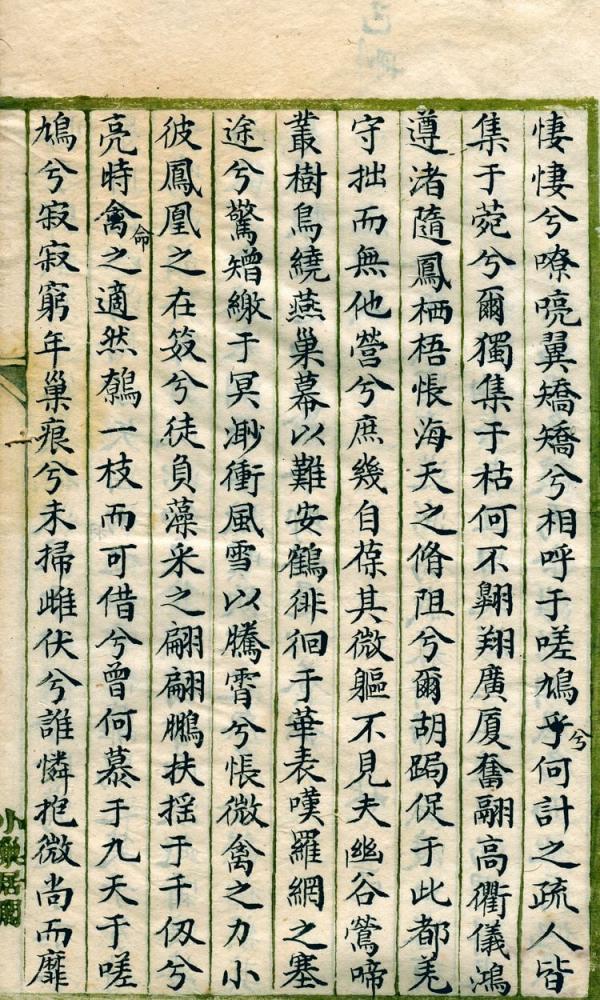 悽悽兮嘹喨翼矯矯兮相呼于嗟鳩乎兮何計之疏人皆
集于菀兮爾獨集于枯何不翱翔廣厦奮翮高衢儀鴻
遵渚隨鳳栖梧悵海天之脩阻兮爾胡跼促于此都羌
守拙而無他營兮庶幾自葆其微軀不見夫幽谷鶯啼
叢樹鳥繞燕巢幕以難安鶴徘徊于華表嘆羅網之塞
途兮驚矰繳于冥渺衝風雪以騰霄兮悵微禽之力小
彼鳳凰之在笯兮徒負藻采之翩翩鵬扶摇于千仭兮
亮時禽命之適然鷦一枝而可借兮曾何慕于九天于嗟
鳩兮寂寂窮年巢痕兮未掃雌伏兮誰憐抱微尚而靡